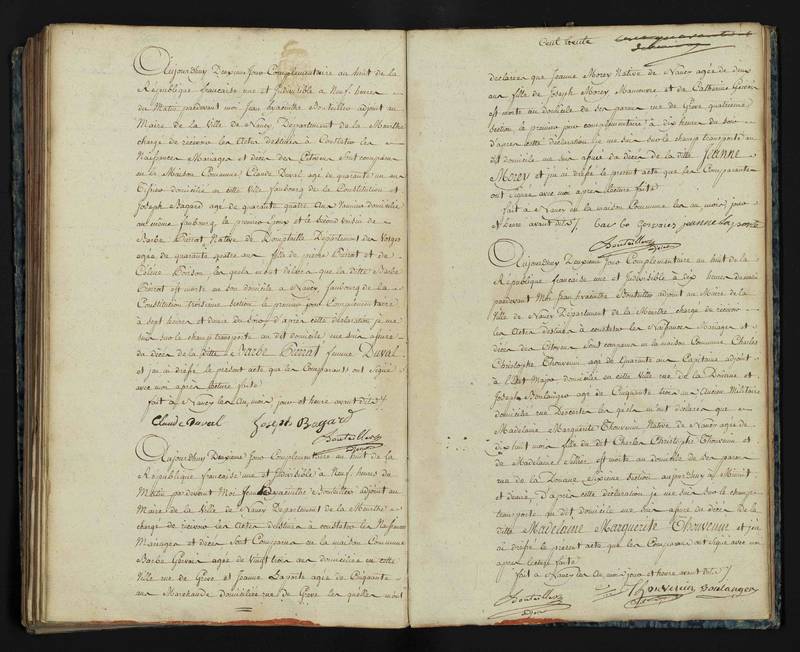 Aujourdhuy Deuxieme Jour Complementaire au huit de la
République française une et Indivisible a Neuf heures
du Matin pardevant moi Jean hyacinthe Bouteiller adjoint au
Maire de la Ville de Nancy Département de la Meurthe
chargé de recevoir les Actes destinés à Constater les
Naissances Mariages et décès des Citoiens Sont comparus
en la Maison Commune Claude Duval agé de quarante un ans
domicilié en cette Ville faubourg de la Constitution et
Joseph Bagard agé de quarante quatre ans domicilié
au même faubourg le premier Epoux et le Second voisin de
Barbe Pierrat Native de Département des Vosges
agée de quarante quatre ans fille de Pierrat et de
les quels mont déclaré que la ditte Barbe
Pierrat est morte en son domicile a Nancy, faubourg de la
Constitution Troisieme Section le premier jour Complementaire
à sept heures et demie du Soir d'après cette déclaration je me
suis sur le champ transporté au dit domicile me suis assuré
du décès de la ditte Barbe Pierrat femme Duval
et j'ai dressé le présent acte que les Comparants ont Signé
avec moi après lecture faite
fait a Nancy les an, mois jour et heure avant dits
Claude duval Joseph Bagard
Bouteiller
Aujourdhuy Deuxieme Jour Complementaire au huit de la
République française une et Indivisible a Neuf heures du
Matin pardevant Moi Jean hyacinthe Bouteiller adjoint au
Maire de la Ville de Nancy Département de la Meurthe
chargé de recevoir les Actes destinés a constater les Naissances
Mariages et décès Sont Comparus en la maison Commune
Barbe agée de Vingt trois ans domiciliée en cette
Ville rue de Grève et Jeanne Laporte agée de Cinquante
ans Marchande domiciliée rue de Grève les quelles m'ont
Cent trente
déclarée que Jeanne Morey Native de Nancy agée de deux
ans fille de Joseph Morey Manoeuvre et de Catherine
est morte au domicile de ses parens rue de Grève quatrieme
Section le premier jour complementaire à dix heures du soir
d'après cette déclaration je me suis sur le champ transporté au
dit domicile me suis assuré du décès de la ditte Jeanne
Morey et j'ai dressé le présent acte que les Comparantes
ont Signé avec moi après lecture faite
fait a Nancy en la maison Commune les an mois jour
et heure avant dits jeanne la porte
Bouteiller
Aujourdhuy Deuxieme Jour Complementaire au huit de la
République française une et Indivisible à Dix heures du matin
pardevant Moi Jean hyacinthe Bouteiller adjoint au Maire de la
Ville de Nancy Département de la Meurthe chargé de recevoir
les Actes destinés à constater les Naissances Mariages et
décès des Citoiens Sont comparus en la maison Commune Charles
Christophe Thouvenin agé de Quarante ans Capitaine adjoint
à l'Etat Major domicilié en cette Ville rue de la Douane et
Joseph Boulanger agé de Cinquante ans Ancien Militaire
domicilié rue Descartes les quels m'ont déclarés que
Madelaine Marguerite Thouvenin Native de Nancy agée de
dix huit mois fille du dit Charles Christophe Thouvenin et
de Madelaine est morte au domicile de ses parens
rue de la Douane Section aujourdhuy à Minuit
et demie, D'après cette déclaration je me suis sur le champ
transporté au dit domicile me suis assuré du décès de la
ditte Madelaine Marguerite Thouvenin et j'ai
dressé le présent acte que les Comparans ont Signé avec moi
après lecture faite
fait a Nancy les an mois jour et heure avant dits
Bouteiller Thouvenin Boulanger